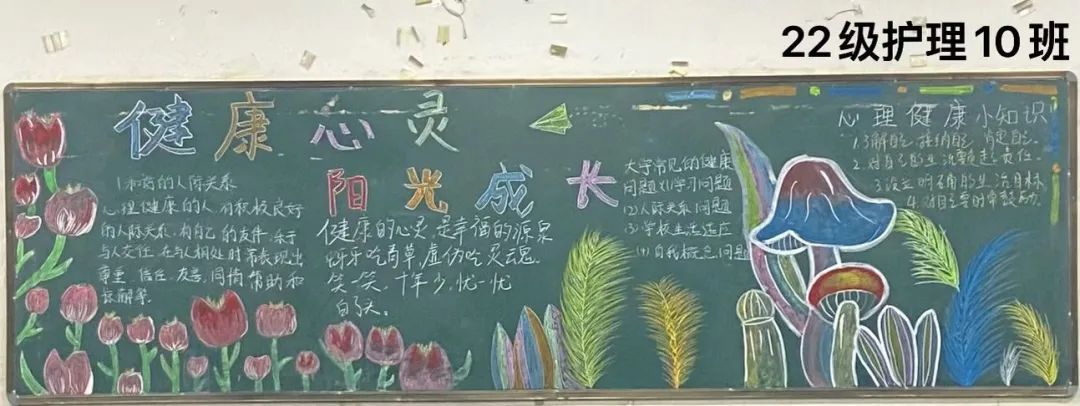 22级护理10班
健康心灵
阳光成长
1.和谐的人际关系
心理健康的人,有积极良好
的人际关系,有自己的友伴,乐于
与人交往,在与人相处时常表现出
尊重、信任、友善、同情、帮助和
谅解等。
健康的心灵,是幸福的源泉
蚜牙吃苟草,虚伪吃灵魂.
笑一笑,十年少,忧一忧
白了头。
大学常见的健康
问题:(1)学习问题
(2)人际关系问题
(3)学校生活适应
(4)自我概念问题
心理健康小知识
1.了解自己 接纳自己 肯定自己
2.对自己的生活负起责任.
3.设立明确的生活目标
4.对自己